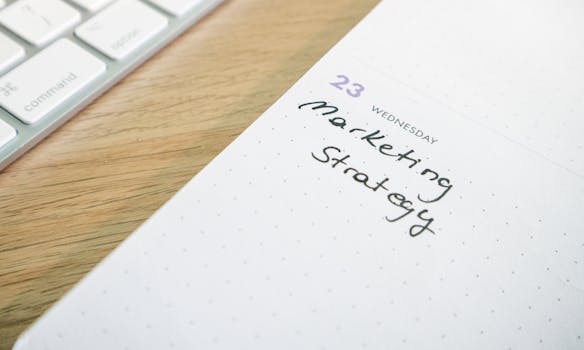 command
option
23 WEDNESDAY
Marketing
Strategy